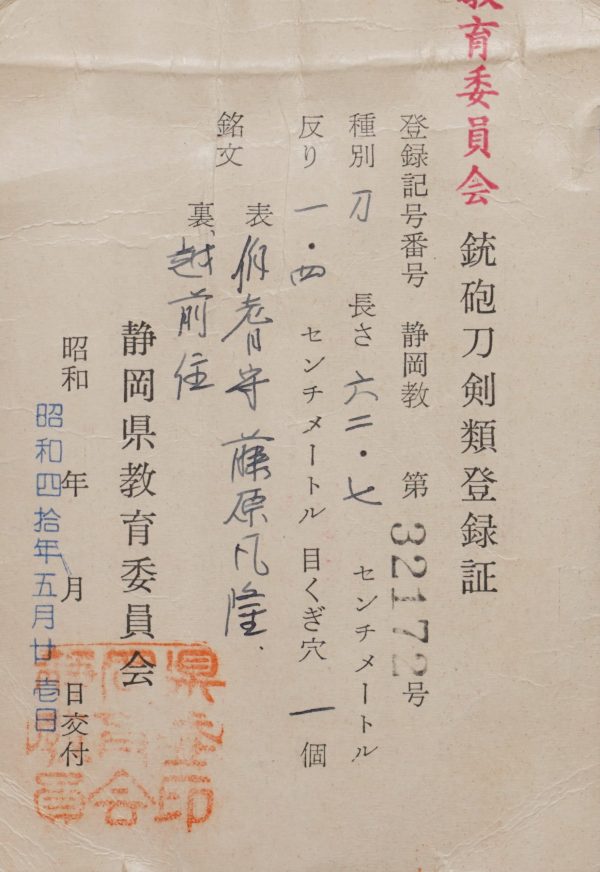 教育委員会
銃砲刀剣類登録証
登録記号番号 静岡教 第32172号
種別 刀 長さ 六二・七 センチメートル
反り 一・四 センチメートル 目くぎ穴 一個
銘文 表 伯耆守藤原凡隆
裏 越前住
静岡県教育委員会
昭和 年 月 日交付
昭和四拾年五月廿壱日
静岡県教育委員会印